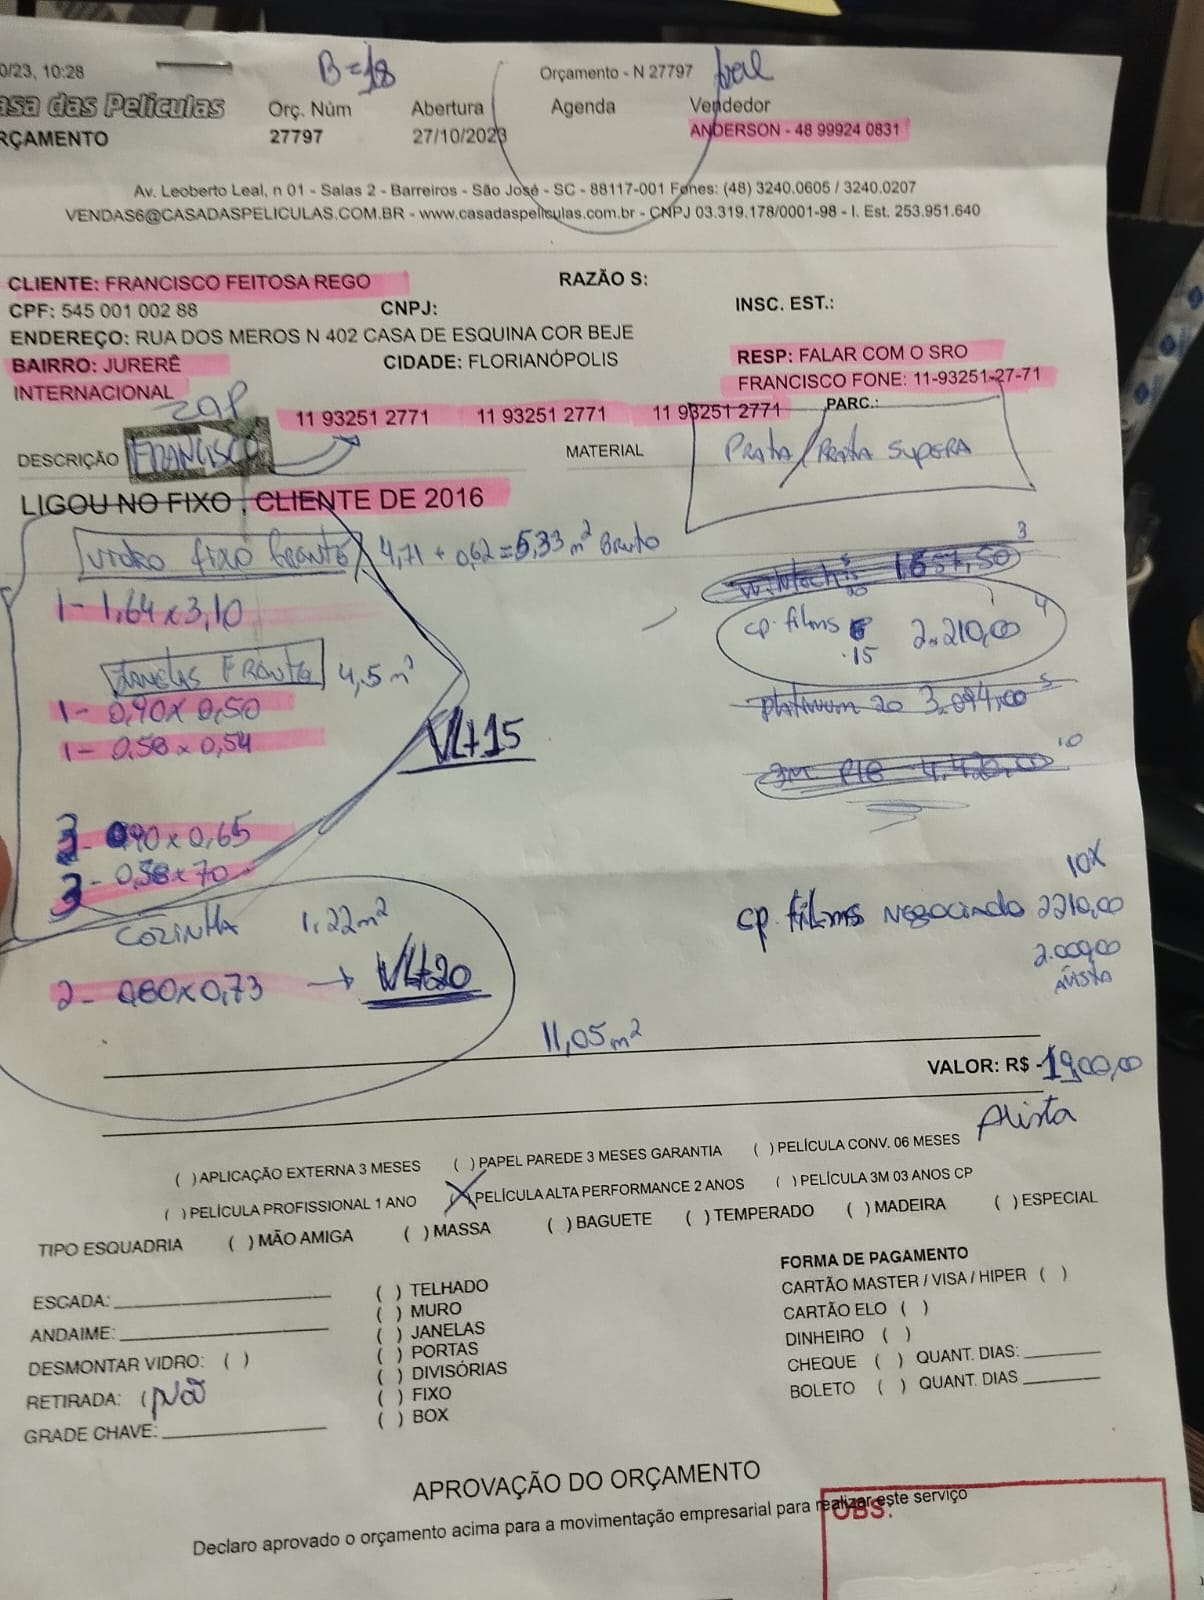 0/23, 10:28
B=18
Orçamento - N 27797
asa das Películas
Orç. Núm
Abertura
Agenda
Vendedor
RÇAMENTO
27797
27/10/2023
ANDERSON - 48 99924 0831
Av. Leoberto Leal, n 01 - Salas 2 - Barreiros - São José - SC - 88117-001 Fones: (48) 3240.0605 / 3240.0207
VENDAS6@CASADASPELICULAS.COM.BR - www.casadaspeliculas.com.br - CNPJ 03.319.178/0001-98 - I. Est. 253.951.640
CLIENTE: FRANCISCO FEITOSA REGO
RAZÃO S:
CPF: 545 001 002 88
CNPJ:
INSC. EST.:
ENDEREÇO: RUA DOS MEROS N 402 CASA DE ESQUINA COR BEJE
BAIRRO: JURERÊ INTERNACIONAL
CIDADE: FLORIANÓPOLIS
RESP: FALAR COM O SRO FRANCISCO FONE: 11-93251-27-71
zap
11 93251 2771 11 93251 2771 11 93251 2771
PARC.:
DESCRIÇÃO FRANCISCO
MATERIAL
Prata/Prata SUPERA
LIGOU NO FIXO , CLIENTE DE 2016
Vidro fixo frante 4,71 + 0,62 = 5,33 m² Bruto
1.657,50 3
1- 1,64 x 3,10
cp. films 15 2.210,00 4
Janelas Frante 4,5 m²
1- 0,90 x 0,50
platinum 20 3.094,00 5
1- 0,58 x 0,54
VLt 15
3m P18 4.420,00 10
3- 0,90 x 0,65
3- 0,58 x 70
10x
COZINHA 1,22 m²
cp. films Negociado 2210,00
2.000,00
Avista
2- 0,80 x 0,73 → VLt 20
11,05 m²
VALOR: R$ -1900,00
Avista
( ) APLICAÇÃO EXTERNA 3 MESES ( ) PAPEL PAREDE 3 MESES GARANTIA ( ) PELÍCULA CONV. 06 MESES
( ) PELÍCULA PROFISSIONAL 1 ANO (X) PELÍCULA ALTA PERFORMANCE 2 ANOS ( ) PELÍCULA 3M 03 ANOS CP
TIPO ESQUADRIA ( ) MÃO AMIGA ( ) MASSA ( ) BAGUETE ( ) TEMPERADO ( ) MADEIRA ( ) ESPECIAL
ESCADA:
ANDAIME:
DESMONTAR VIDRO: ( )
RETIRADA: ( Não
GRADE CHAVE:
( ) TELHADO
( ) MURO
( ) JANELAS
( ) PORTAS
( ) DIVISÓRIAS
( ) FIXO
( ) BOX
FORMA DE PAGAMENTO
CARTÃO MASTER / VISA / HIPER ( )
CARTÃO ELO ( )
DINHEIRO ( )
CHEQUE ( ) QUANT. DIAS:
BOLETO ( ) QUANT. DIAS
APROVAÇÃO DO ORÇAMENTO
Declaro aprovado o orçamento acima para a movimentação empresarial para realizar este serviço
OBS: